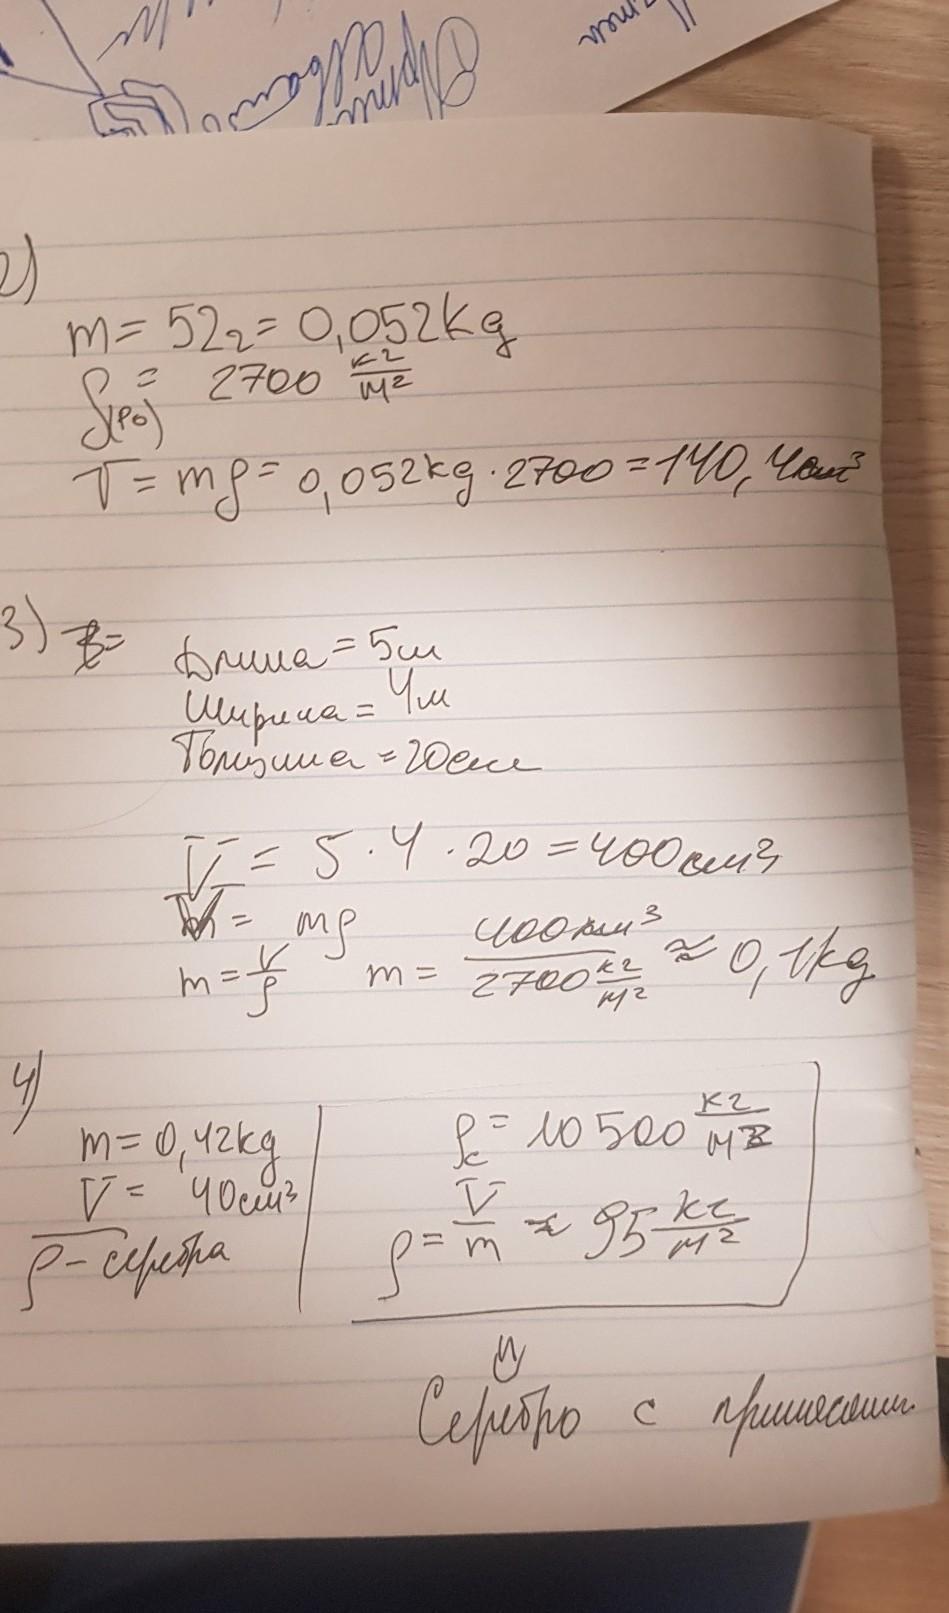 2)
m = 52г = 0,052kg
ρ(ро) = 2700 кг/м²
V = mρ = 0,052kg · 2700 = 140,4см³
3)
Длина = 5м
Ширина = 4м
Толщина = 20см
V = 5 · 4 · 20 = 400см³
V = mρ
m = V/ρ m = 400см³/2700 кг/м² ≈ 0,1kg
4)
m = 0,42kg
V = 40см³
ρ - серебра
ρс = 10 500 кг/м²
ρ = V/m ≈ 95 кг/м²
Серебро с примесями